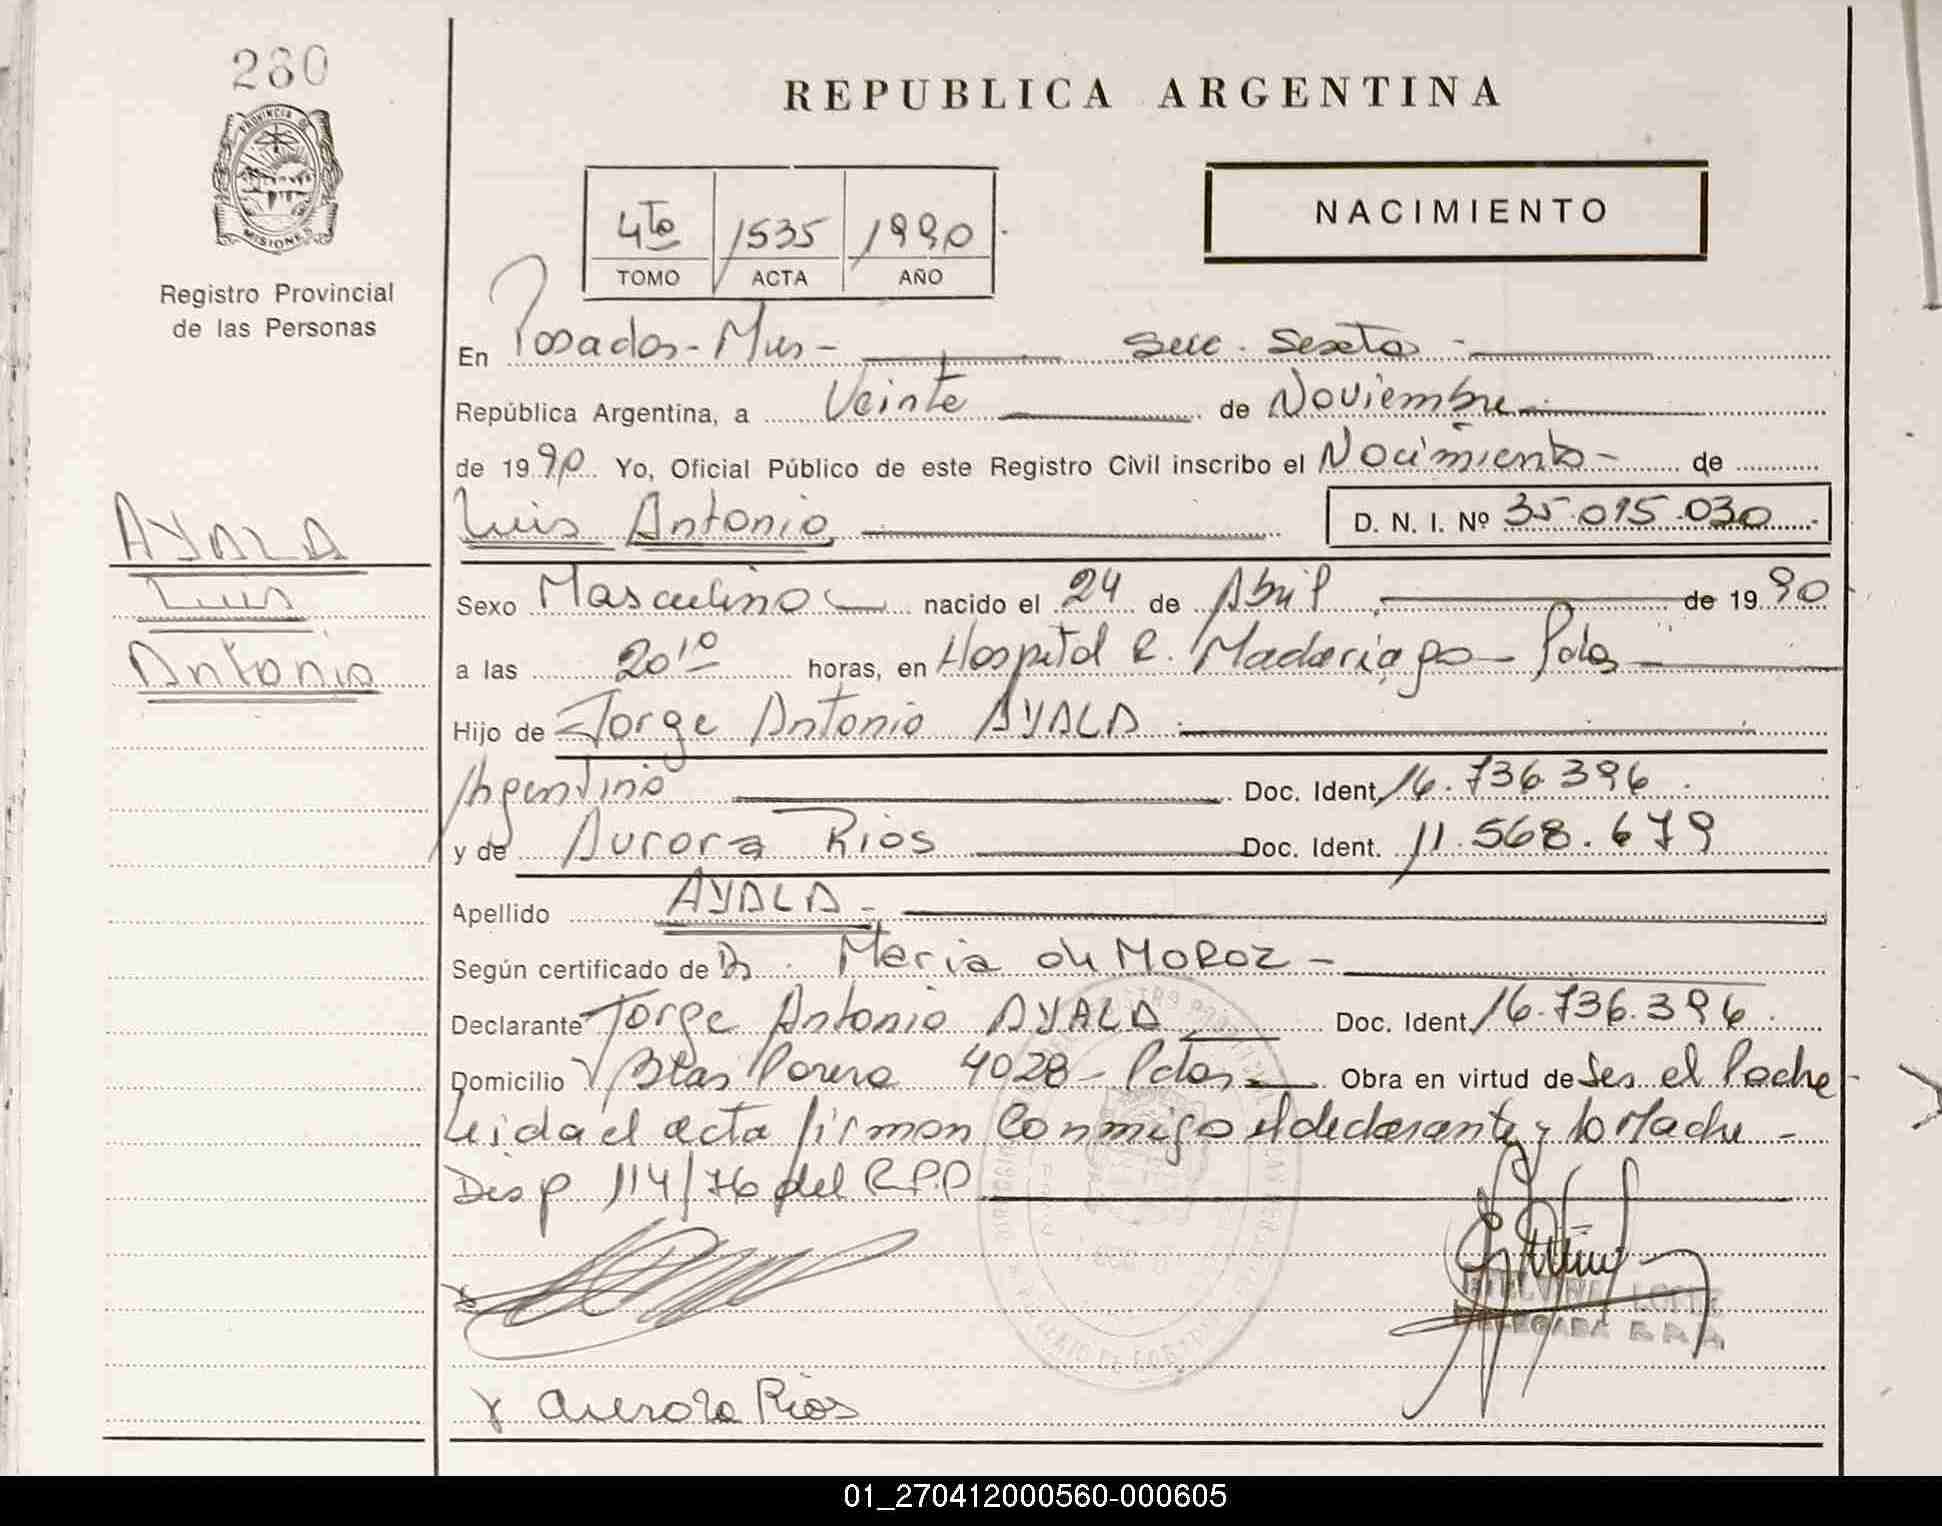 280
PROVINCIA DE
MISIONES
Registro Provincial
de las Personas
REPUBLICA ARGENTINA
4to 1535 1990
TOMO ACTA AÑO
NACIMIENTO
En Posadas - Mnes - Secc. Sexta -
República Argentina, a Veinte de Noviembre
de 1990 Yo, Oficial Público de este Registro Civil inscribo el Nacimiento - de
Luis Antonio D. N. I. Nº 35.015.030
AYALA
Luis
Antonio
Sexo Masculino nacido el 24 de Abril de 1990
a las 20 10 horas, en Hospital R. Madariaga - Pdas
Hijo de Jorge Antonio AYALA
Argentino Doc. Ident. 16.736.396
y de Aurora Rios Doc. Ident. 11.568.679
Apellido AYALA -
Según certificado de Dr. Maria de MOROZ -
Declarante Jorge Antonio AYALA Doc. Ident. 16.736.396
Domicilio Blas Parera 4028 - Pdas Obra en virtud de Ser el Padre
Leida el acta firman conmigo el declarante y la Madre -
Disp 114/76 del RPP
DELEGADA R.P.P.
x Aurora Rios
01_270412000560-000605